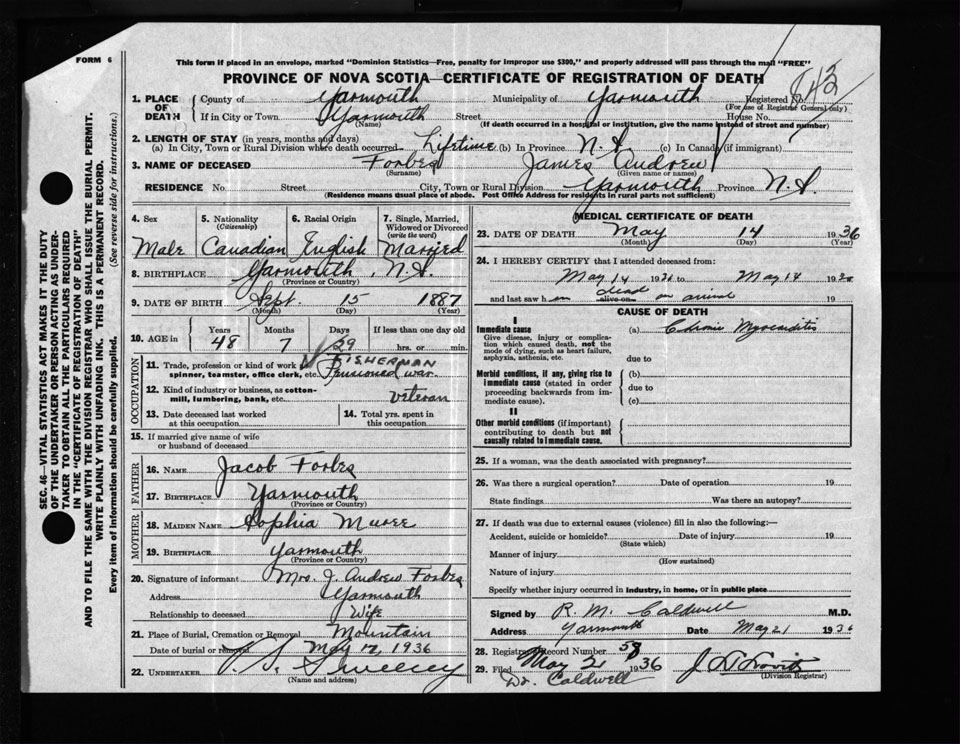 FORM 6
This form if placed in an envelope, marked "Dominion Statistics—Free, penalty for improper use $300," and properly addressed will pass through the mail "FREE"
PROVINCE OF NOVA SCOTIA—CERTIFICATE OF REGISTRATION OF DEATH
1. PLACE OF DEATH
County of Yarmouth Municipality of Yarmouth Registered No.
(For use of Registrar General only)
If in City or Town Yarmouth Street House No.
(Name) (If death occurred in a hospital or institution, give the name instead of street and number)
2. LENGTH OF STAY (in years, months and days)
(a) In City, Town or Rural Division where death occurred Lifetime (b) In Province N.S. (c) In Canada (if immigrant)
3. NAME OF DECEASED Forbes James Andrew
(Surname) (Given name or names)
RESIDENCE No. Street City, Town or Rural Division Yarmouth Province N.S.
(Residence means usual place of abode. Post Office Address for residents in rural parts not sufficient)
4. Sex 5. Nationality (Citizenship) 6. Racial Origin 7. Single, Married, Widowed or Divorced (write the word)
Male Canadian English Married
8. BIRTHPLACE Yarmouth, N.S.
(Province or Country)
9. DATE OF BIRTH Sept. 15 1887
(Month) (Day) (Year)
10. AGE in Years Months Days If less than one day old
48 7 29 hrs. or min.
OCCUPATION
11. Trade, profession or kind of work as spinner, teamster, office clerk, etc. FISHERMAN Pensioned war
12. Kind of industry or business, as cotton-mill, lumbering, bank, etc. Veteran
13. Date deceased last worked at this occupation
14. Total yrs. spent in this occupation
15. If married give name of wife or husband of deceased
FATHER
16. NAME Jacob Forbes
17. BIRTHPLACE Yarmouth
(Province or Country)
MOTHER
18. MAIDEN NAME Sophia
19. BIRTHPLACE Yarmouth
(Province or Country)
20. Signature of informant Mrs. J. Andrew Forbes
Address Yarmouth
Relationship to deceased Wife
21. Place of Burial, Cremation or Removal Mountain
Date of burial or removal May 17, 1936
22. UNDERTAKER Sweeney
(Name and address)
MEDICAL CERTIFICATE OF DEATH
23. DATE OF DEATH May 14 1936
(Month) (Day) (Year)
24. I HEREBY CERTIFY that I attended deceased from:
May 14 1936 to May 14 1936
and last saw h im alive on dead on arrival 19
CAUSE OF DEATH
I
Immediate cause (a) Chronic Myocarditis
Give disease, injury or complication which caused death, not the mode of dying, such as heart failure, asphyxia, asthenia, etc.
due to
Morbid conditions, if any, giving rise to immediate cause (stated in order proceeding backwards from immediate cause).
(b)
due to
(c)
II
Other morbid conditions (if important) contributing to death but not causally related to immediate cause.
25. If a woman, was the death associated with pregnancy?
26. Was there a surgical operation? Date of operation 19
State findings Was there an autopsy?
27. If death was due to external causes (violence) fill in also the following:—
Accident, suicide or homicide? Date of injury 19
(State which)
Manner of injury
(How sustained)
Nature of injury
Specify whether injury occurred in industry, in home, or in public place
Signed by R. M. Caldwell M.D.
Address Yarmouth Date May 21 1936
28. Registrar's Record Number 58
29. Filed May 21 1936
(Division Registrar)
Dr. Caldwell
SEC. 46—VITAL STATISTICS ACT MAKES IT THE DUTY
OF THE UNDERTAKER OR PERSON ACTING AS UNDER-
TAKER TO OBTAIN ALL THE PARTICULARS REQUIRED
IN THE "CERTIFICATE OF REGISTRATION OF DEATH"
AND TO FILE THE SAME WITH THE DIVISION REGISTRAR WHO SHALL ISSUE THE BURIAL PERMIT.
WRITE PLAINLY WITH UNFADING INK. THIS IS A PERMANENT RECORD.
Every item of information should be carefully supplied. (See reverse side for instructions.)